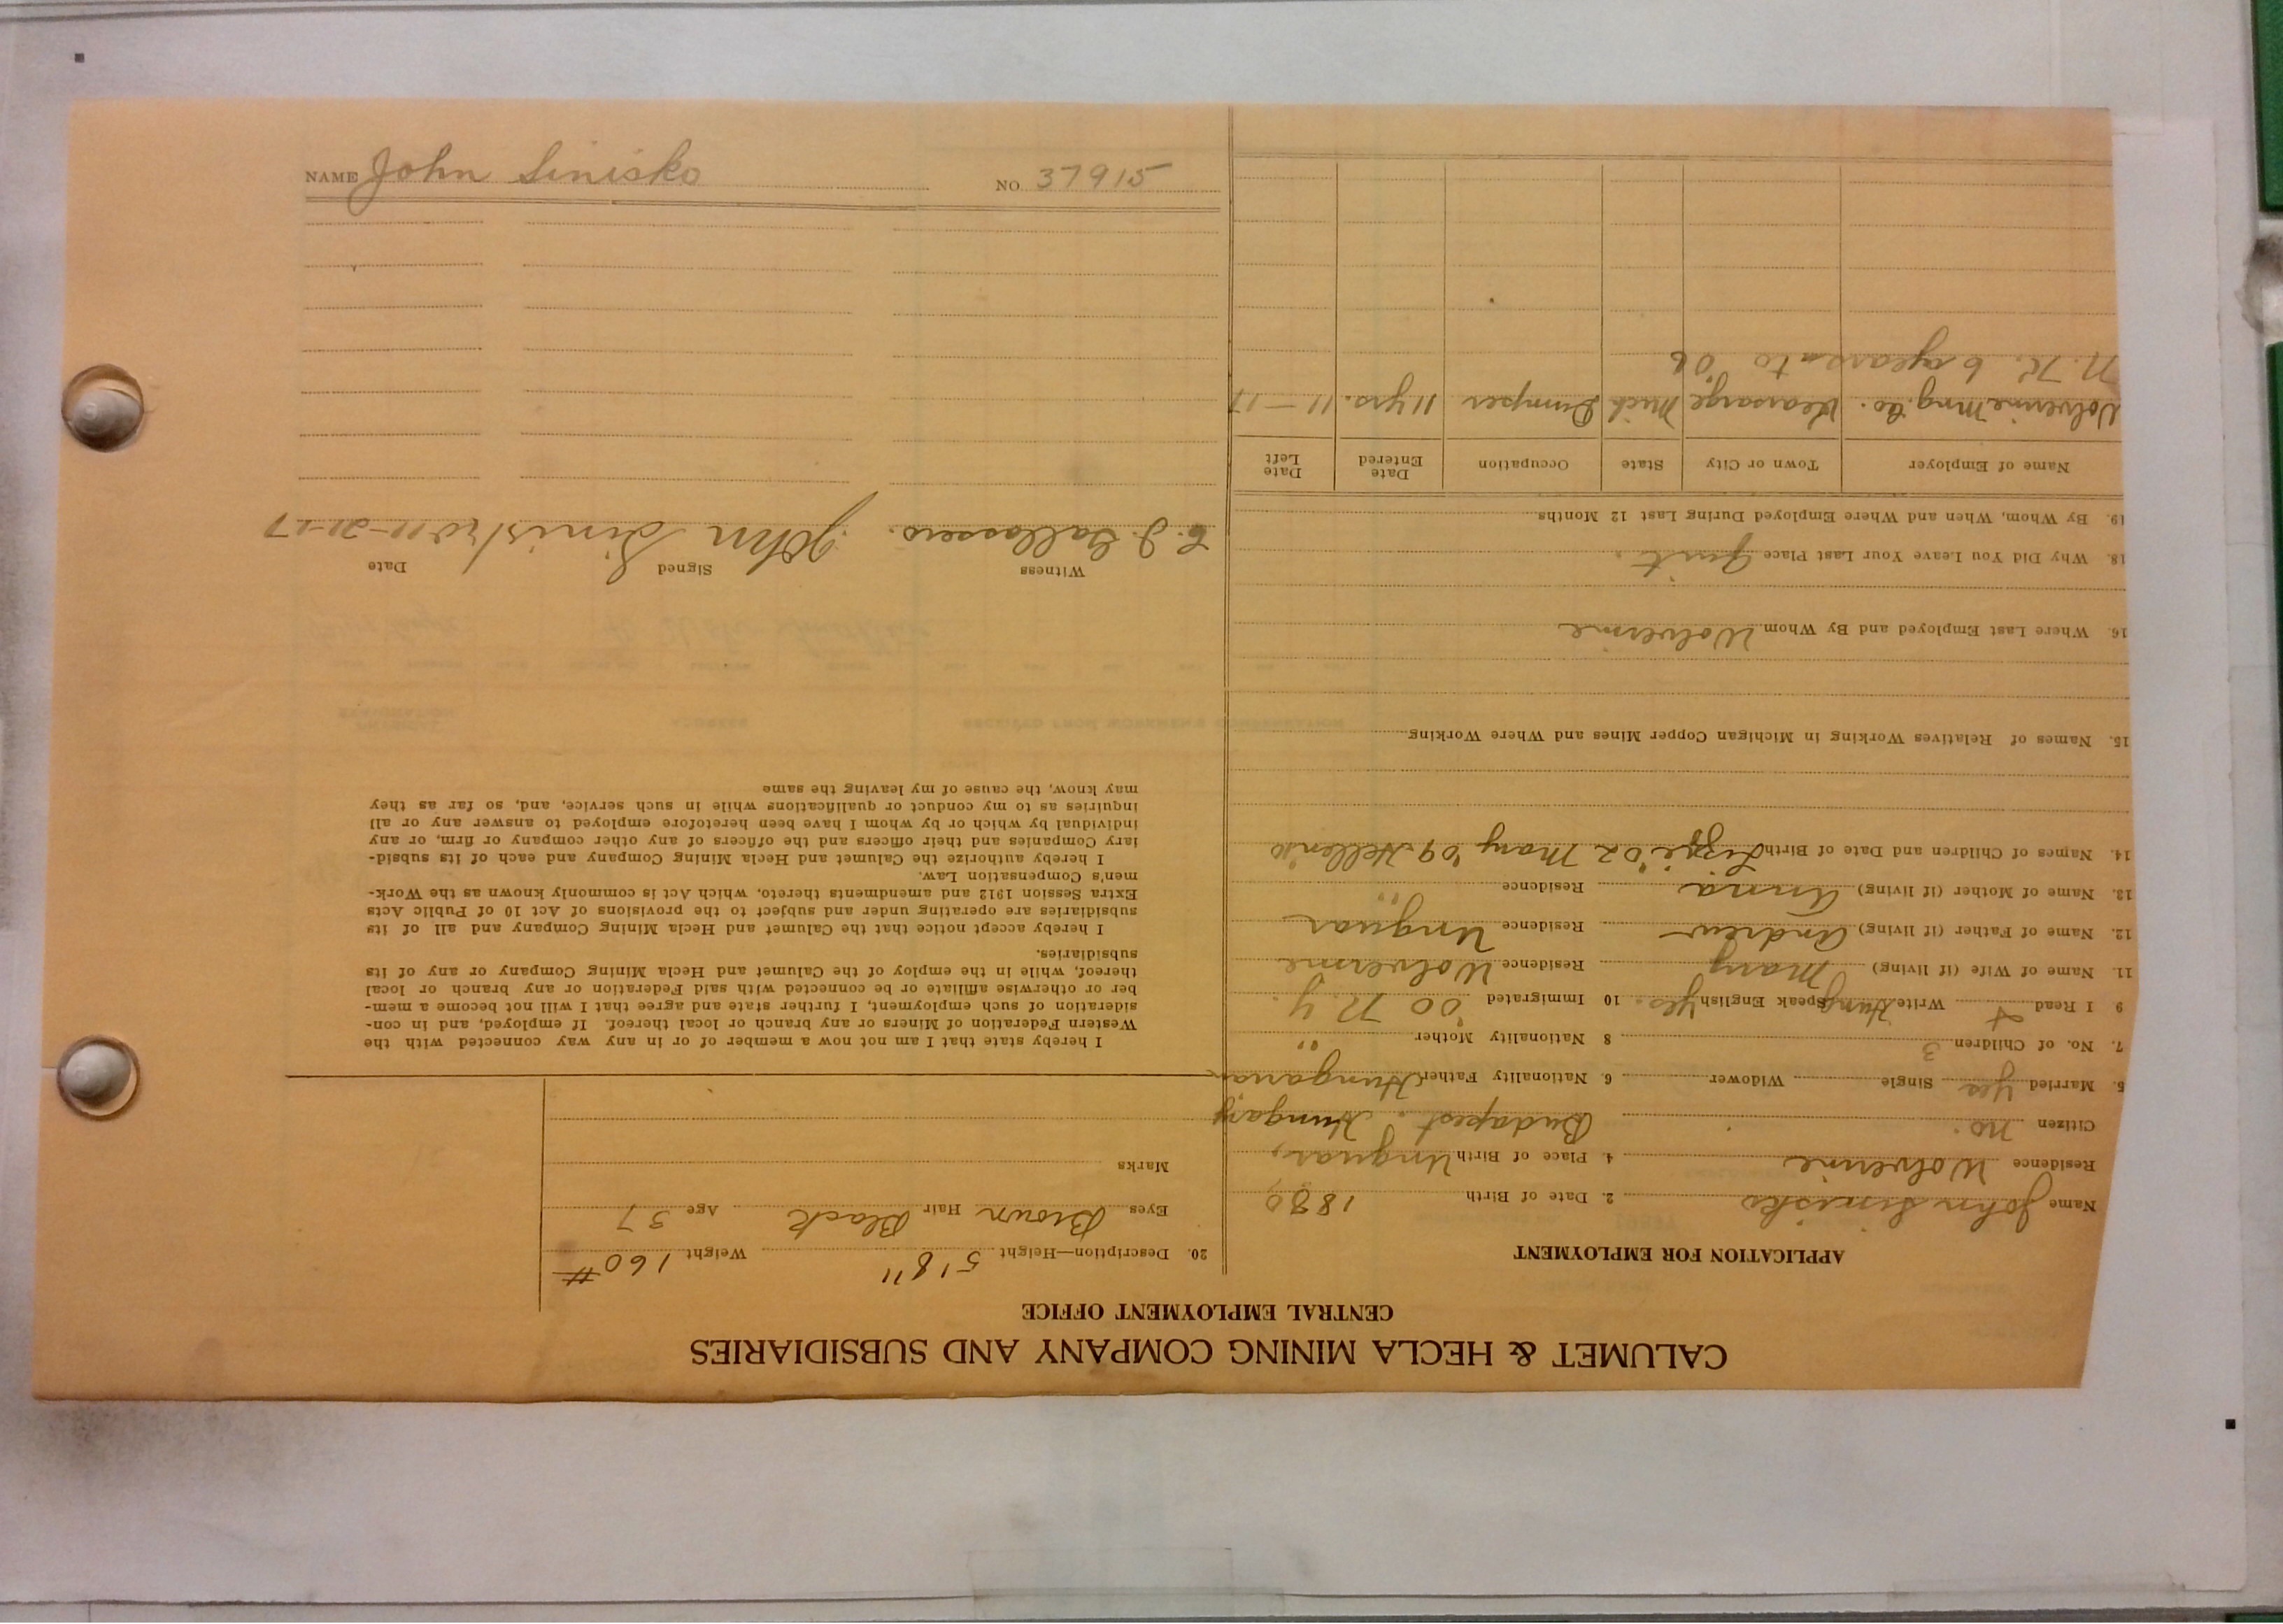 CALUMET & HECLA MINING COMPANY AND SUBSIDIARIES
CENTRAL EMPLOYMENT OFFICE
APPLICATION FOR EMPLOYMENT
Name John Sinisko 2. Date of Birth 1880
Residence Wolverine 4. Place of Birth Unguar,
Citizen no. Budapest. Hungary
5. Married Yes Single Widower 6. Nationality Father Hungarian
7. No. of Children 3 8 Nationality Mother "
9 I Read + Write Hung Speak English Yes. 10 Immigrated '00 N.Y.
11. Name of Wife (if living) Mary Residence Wolverine
12. Name of Father (if living) Andrew Residence Unguar
13. Name of Mother (if living) Anna Residence "
14. Names of Children and Date of Birth Lizzie '02 Mary '09 Hellen '10
15. Names of Relatives Working in Michigan Copper Mines and Where Working
16. Where Last Employed and By Whom Wolverine
18. Why Did You Leave Your Last Place Quit.
19. By Whom, When and Where Employed During Last 12 Months
Name of Employer Town or City State Occupation Date Entered Date Left
Wolverine Mng. Co. Kearsarge Mich Dumper 11 yrs. 11-17
N. K. 6 years to '06
20. Description—Height 5'8" Weight 160#
Eyes Brown Hair Black Age 37
Marks
I hereby state that I am not now a member of or in any way connected with the
Western Federation of Miners or any branch or local thereof. If employed, and in con-
sideration of such employment, I further state and agree that I will not become a mem-
ber or otherwise affiliate or be connected with said Federation or any branch or local
thereof, while in the employ of the Calumet and Hecla Mining Company or any of its
subsidiaries.
I hereby accept notice that the Calumet and Hecla Mining Company and all of its
subsidiaries are operating under and subject to the provisions of Act 10 of Public Acts
Extra Session 1912 and amendments thereto, which Act is commonly known as the Work-
men's Compensation Law.
I hereby authorize the Calumet and Hecla Mining Company and each of its subsid-
iary Companies and their officers and the officers of any other company or firm, or any
individual by which or by whom I have been heretofore employed to answer any or all
inquiries as to my conduct or qualifications while in such service, and, so far as they
may know, the cause of my leaving the same
Witness Signed Date
John Sinisko 11-21-17
NAME John Sinisko NO. 37915